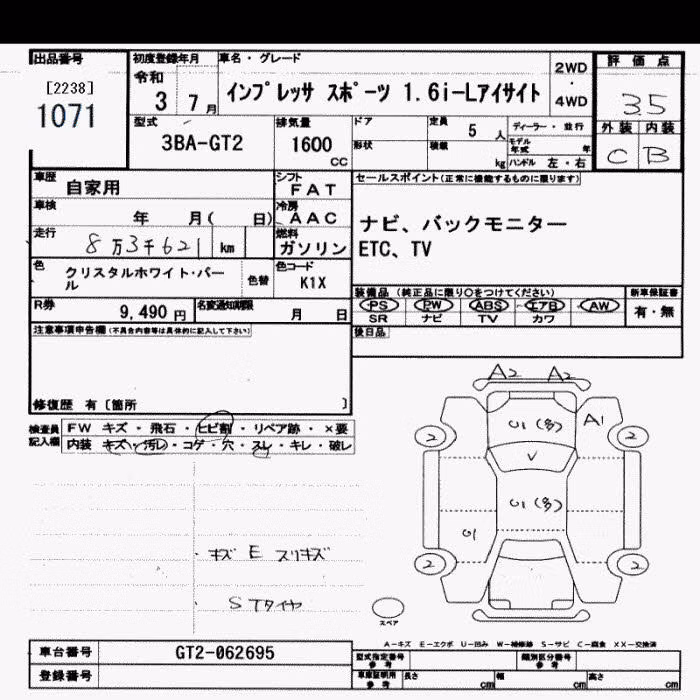 出品番号
[2238]
1071
初度登録年月
令和
3 7月
車名・グレード
インプレッサ スポーツ 1.6i-Lアイサイト
2WD
・
4WD
評価点
3.5
外装 内装
C B
型式
3BA-GT2
排気量
1600
cc
ドア
形状
定員 5 人
積載 kg
ディーラー・並行
モデル年式 年
ハンドル 左・右
車歴 自家用
シフト
FAT
車検 年 月( 日)
冷房
AAC
走行 8万3千621 km
燃料
ガソリン
色 クリスタルホワイト・パール
色替
色コード
K1X
R券 9,490円
名変通知期限 月 日
セールスポイント(正常に機能するものに限ります)
ナビ、バックモニター
ETC、TV
装備品(純正品に限り○をつけてください)
PS PW ABS エアB AW
SR ナビ TV カワ
新車保証書
有・無
後日品
注意事項申告欄(不具合内容等は具体的に記入して下さい)
修復歴 有〔箇所 〕
検査員
記入欄
FW キズ・飛石・ヒビ割・リペア跡・×要
内装 キズ・汚レ・コゲ・穴・スレ・キレ・破レ
キズ E スリキズ
S Tタイヤ
A2 A2
U1(多)
A1
2 2
V
U1(多)
U1
2 2
スペア
A-キズ E-エクボ U-凹み W-補修跡 S-サビ C-腐食 XX-交換済
車台番号 GT2-062695
登録番号
型式指定番号
参考
類別区分番号
参考
車庫証明用
参考
長さ cm
幅 cm
高さ cm